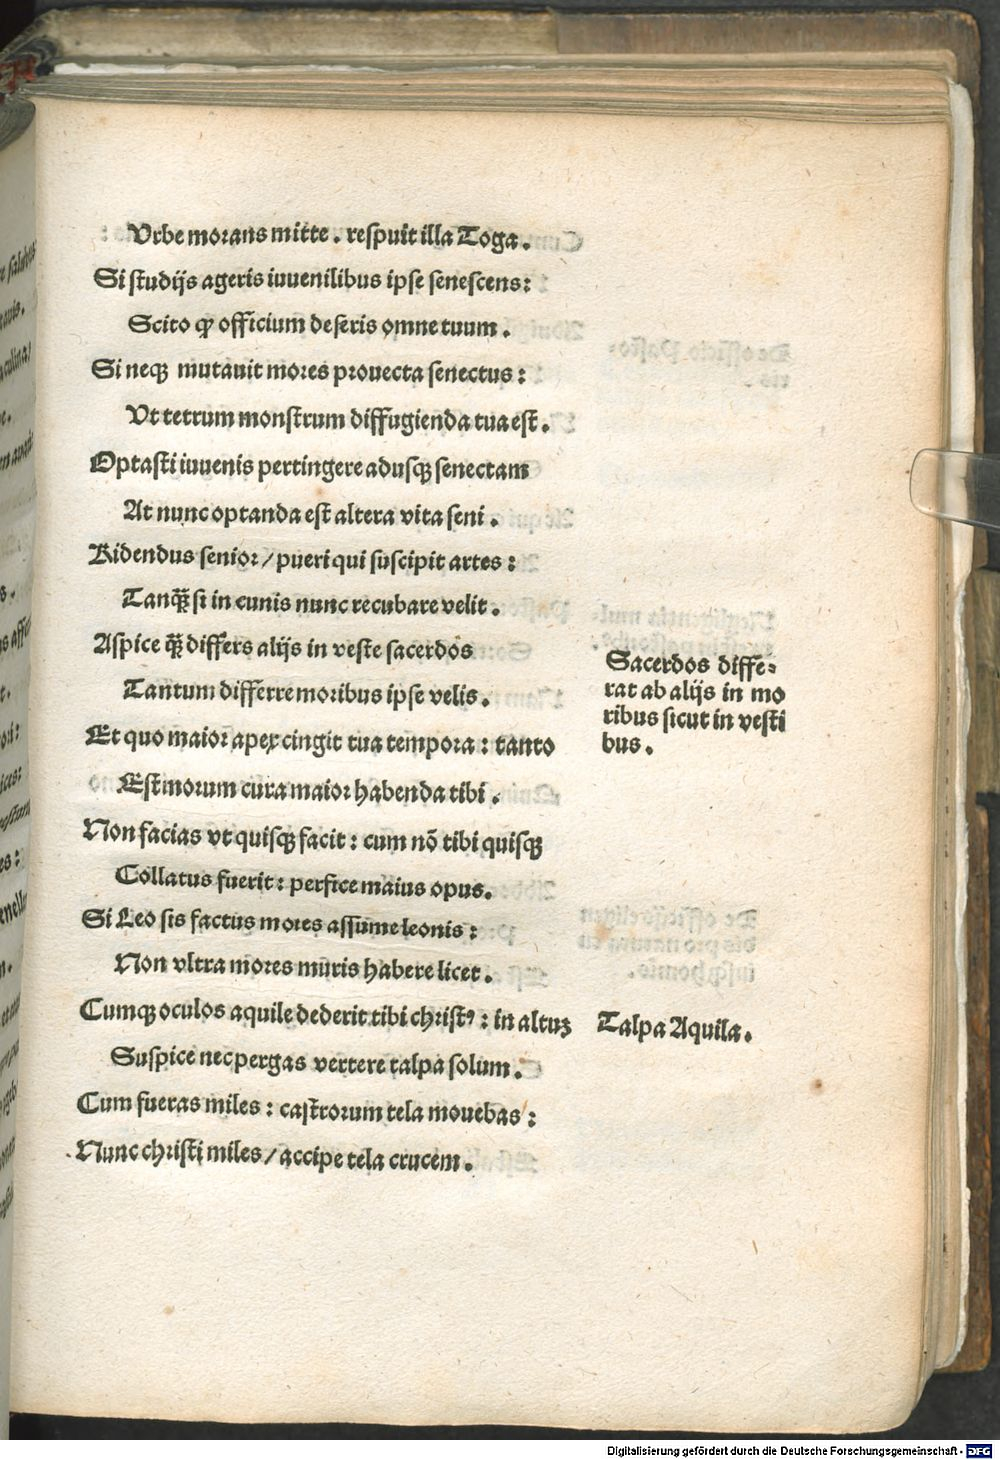 Vrbe morans mitte . respuit illa Toga .
Si studijs ageris iuuenilibus ipse senescens :
Scito ꝙ officium deseris omne tuum .
Si neqꝫ mutauit mores prouecta senectus :
Vt tetrum monstrum diffugienda tua est .
Optasti iuuenis pertingere adusqꝫ senectam
At nunc optanda est altera vita seni .
Ridendus senior / pueri qui suscipit artes :
Tanqꝫ̃ si in cunis nunc recubare velit .
Aspice qꝫ̃ differs alijs in veste sacerdos
Tantum differre moribus ipse velis .
Et quo maior apex cingit tua tempora : tanto
Est morum cura maior habenda tibi .
Non facias vt quisqꝫ facit : cum nō tibi quisqꝫ
Collatus fuerit : perfice maius opus .
Si Leo sis factus mores assume leonis :
Non vltra mores muris habere licet .
Cumqꝫ oculos aquile dederit tibi christꝰ : in altuꝫ
Suspice nec pergas vertere talpa solum .
Cum fueras miles : castrorum tela mouebas :
Nunc christi miles / accipe tela crucem .
Sacerdos diffe-
rat ab alijs in mo
ribus sicut in vesti
bus .
Talpa Aquila .
Digitalisierung gefördert durch die Deutsche Forschungsgemeinschaft - DFG